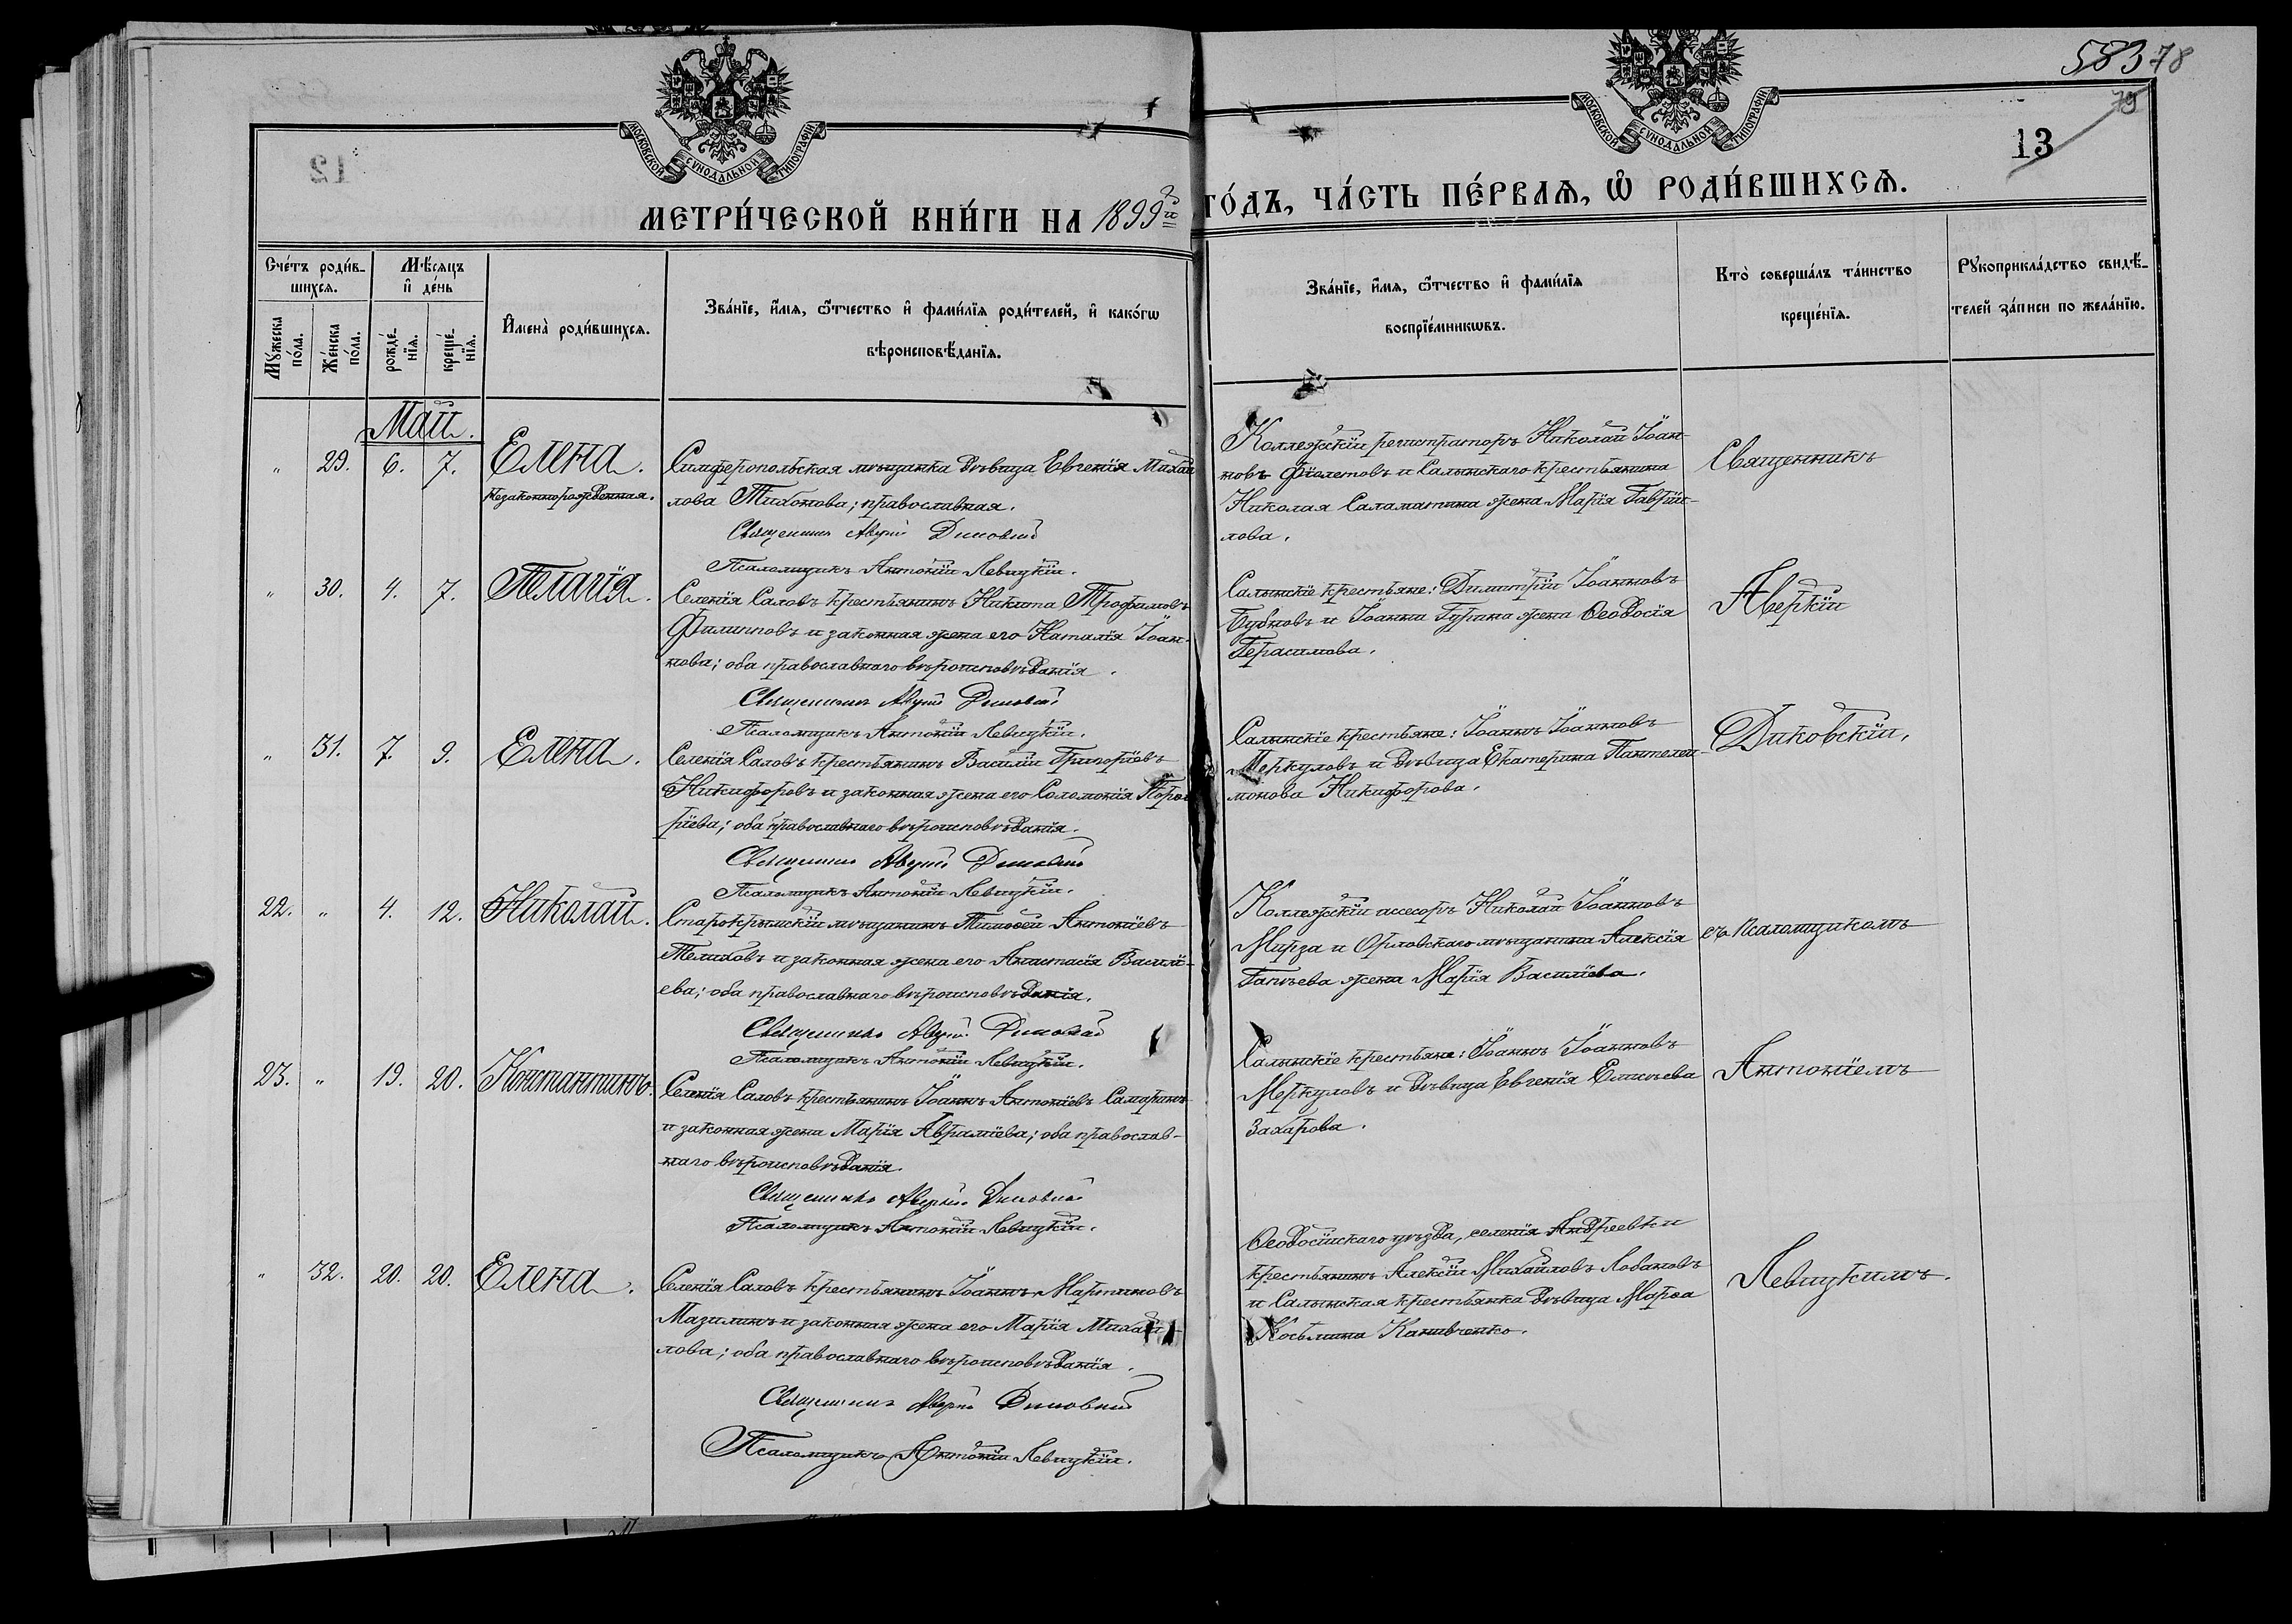 583 78
79
13
МОСКОВСКОЙ СѴНОДАЛЬНОЙ ТИПОГРАФІИ
МОСКОВСКОЙ СѴНОДАЛЬНОЙ ТИПОГРАФІИ
МЕТРИ́ЧЕСКОЙ КНИ́ГИ НА 1899й ГО́ДЪ, ЧА́СТЬ ПЕ́РВАѦ, Ѽ РОДИ́ВШИХСѦ.
Счетъ роди́в-
шихсѧ.
Мꙋжеска по́ла.
Же́нска по́ла.
Мѣ́сѧцъ и҆ де́нь
рожде́-нїѧ.
креще́-нїѧ.
И҆мена̀ роди́вшихсѧ.
Зва́нїе, и҆́мѧ, ѻ҆́тчество и҆ фами́лїѧ роди́телей, и҆ како́гѡ
вѣроисповѣ́данїѧ.
Зва́нїе, и҆́мѧ, ѻ҆́тчество и҆ фами́лїѧ
воспрїе́мникѡвъ.
Кто̀ соверша́лъ та́инство
креще́нїѧ.
Рꙋкоприкла́дство свидѣ́-
телей за́писи по жела́нїю.
Май.
" 29. 6. 7. Елена.
незаконнорожденная.
Симферопольская мѣщанка дѣвица Евгенія Михай
лова Тихонова; православная.
Священникъ Аверкій Диковскій
Псаломщикъ Антоній Левицкій.
Коллежскій регистраторъ Николай Іоан-
новъ Фіолетовъ и Салынскаго крестьянина
Николая Саламатина жена Марія Гаврій-
лова.
Священникъ
" 30. 4. 7. Пелагія.
Селенія Саловъ крестьянинъ Никита Трофимовъ
Филипповъ и законная жена его Наталія Іоан-
нова; оба православнаго вѣроисповѣданія.
Священникъ Аверкій Диковскій
Псаломщикъ Антоній Левицкій.
Салынскіе крестьяне: Димитрій Іоанновъ
Бубновъ и Іоанна Гурина жена Ѳеодосія
Герасимова.
Аверкій
" 31. 7. 9. Елена.
Селенія Саловъ крестьянинъ Василій Григоріевъ
Никифоровъ и законная жена его Соломонія
ріева; оба православнаго вѣроисповѣданія.
Священникъ Аверкій Диковскій
Псаломщикъ Антоній Левицкій.
Салынскіе крестьяне: Іоаннъ Іоанновъ
Меркуловъ и дѣвица Екатерина Пантелей-
монова Никифорова.
Диковскій,
22. " 4. 12. Николай.
Старокрымскій мѣщанинъ Тимоѳей Антоніевъ
Телиховъ и законная жена его Анастасія Василі-
ева; оба православнаго вѣроисповѣданія.
Священникъ Аверкій Диковскій
Псаломщикъ Антоній Левицкій.
Коллежскій ассесоръ Николай Іоанновъ
Мирза и Орловскаго мѣщанина Алексія
Гапѣева жена Марія Василіева.
съ псаломщикомъ
23. " 19. 20. Константинъ.
Селенія Саловъ крестьянинъ Іоаннъ Антоніевъ Саморинъ
и законная жена Марія Авраміева; оба православ-
наго вѣроисповѣданія.
Священникъ Аверкій Диковскій
Псаломщикъ Антоній Левицкій.
Салынскіе крестьяне: Іоаннъ Іоанновъ
Меркуловъ и дѣвица Евгенія Елисѣева
Захарова.
Антоніемъ
" 32. 20. 20. Елена.
Селенія Саловъ крестьянинъ Іоаннъ Мартиновъ
Мазилинъ и законная жена его Марія Михай-
лова; оба православнаго вѣроисповѣданія.
Священникъ Аверкій Диковскій
Псаломщикъ Антоній Левицкій.
Ѳеодосійскаго уѣзда, селенія Андреевки
крестьянинъ Алексій Михайловъ Лобановъ
и Салынская крестьянка дѣвица Марѳа
Косьмина Канивченко.
Левицкимъ.